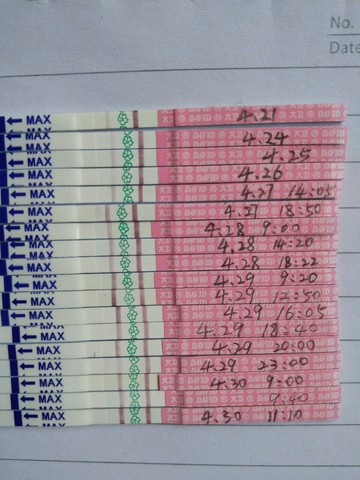 No.
Date
MAX 4.21
MAX 4.24
MAX 4.25
MAX 4.26
MAX 4.27 14:05
MAX 4.27 18:50
MAX 4.28 9:00
MAX 4.28 14:20
MAX 4.28 18:22
MAX 4.29 9:20
MAX 4.29 12:50
MAX 4.29 16:05
MAX 4.29 18:40
MAX 4.29 20:00
MAX 4.29 23:00
MAX 4.30 9:00
MAX 9:40
MAX 4.30 11:10